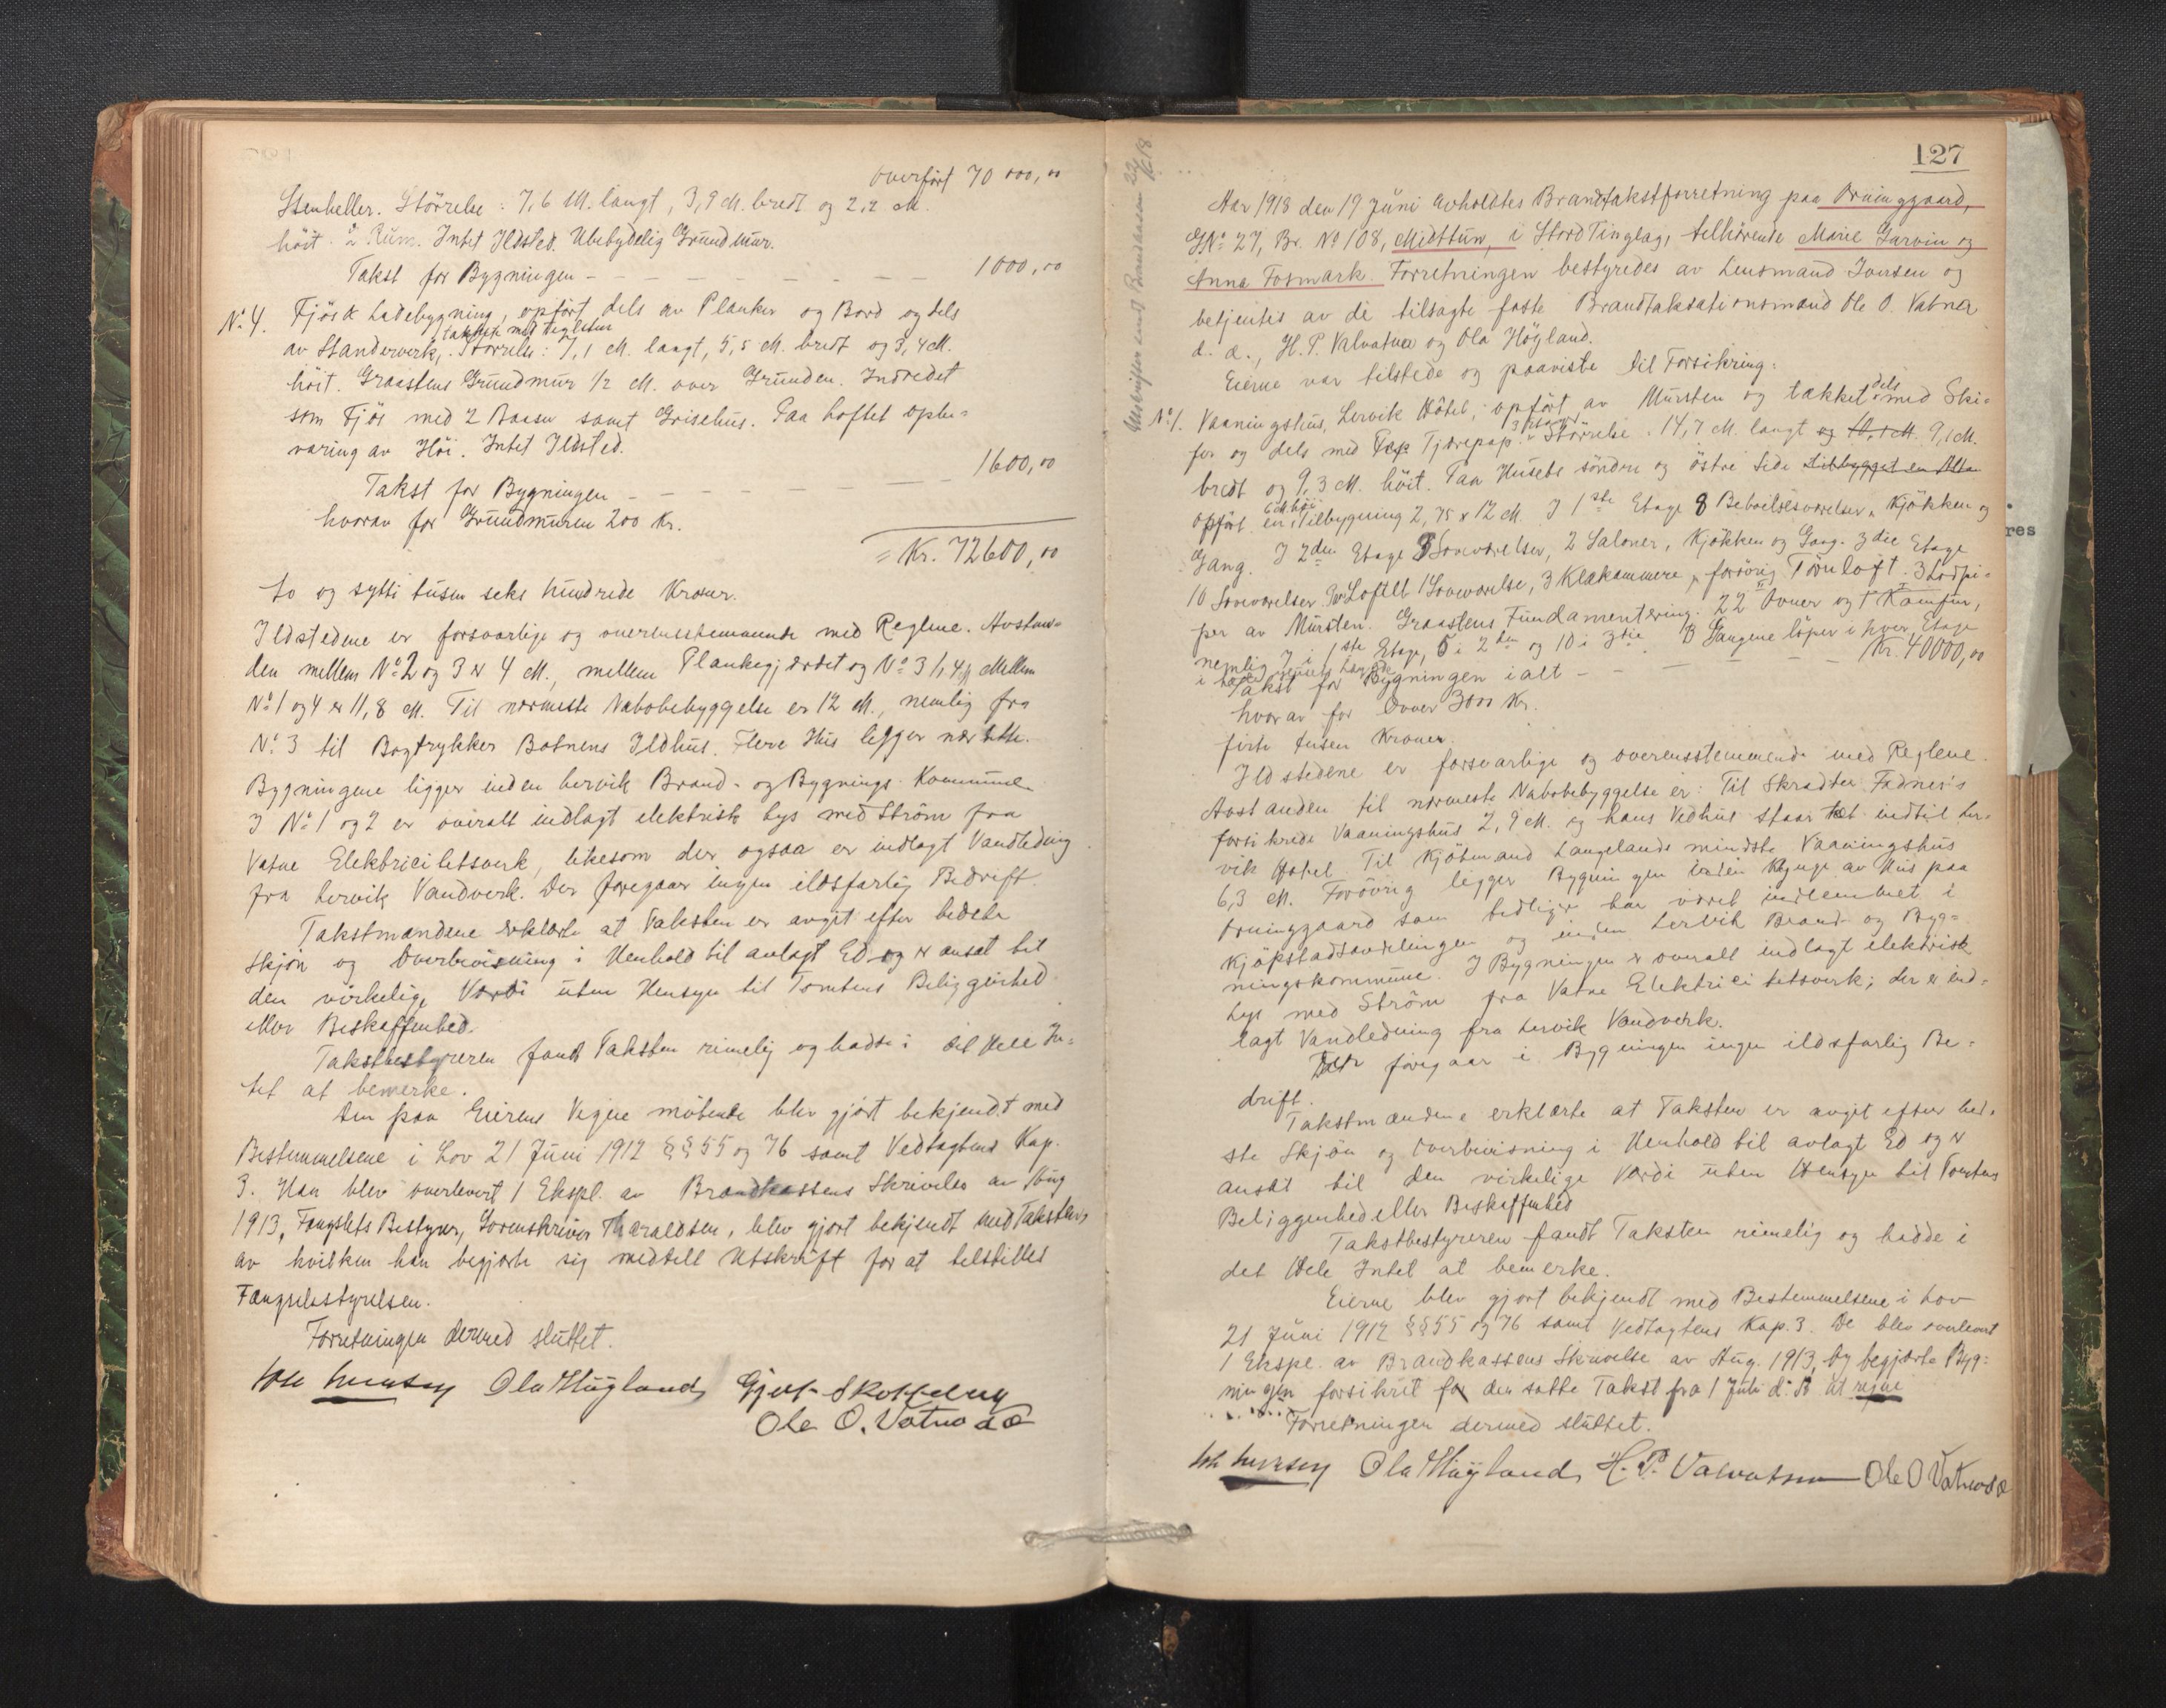 overført 70 000,00
Stenheller. Størrelse: 7,6 M. langt, 3,9 M. bredt og 2,2 M.
høit. 2 Rum. Intet Ildsted. Ubetydelig Grundmur.
Takst for Bygningen - 1000,00
No 4. Fjøs & Ladebygning, opført dels av Planker og Bord og dels
takket med Teglsten
av Standerverk, Størrelse: 7,1 M. langt, 5,5 M. bredt og 3,4 M.
høit. Graastens Grundmur 1/2 M. over Grunden. Indredet
som Fjøs med 2 Baaser samt Grisehus. Paa Loftet opbe-
varing av Høi. Intet Ildsted.
Takst for Bygningen - 1600,00
hvorav for Grundmuren 200 Kr.
= Kr. 72600,00
to og sytti tusen seks hundrede Kroner.
Ildstedene er forsvarlige og overensstemmende med Reglene. Avstan-
den mellem No 2 og 3 er 4 M., mellem Plankegjærdet og No 3 1,4 Mellem
No 1 og 4 er 11,8 M. Til nærmeste Nabobebyggelse er 12 M., nemlig fra
No 3 til Bogtrykker Botnens Ildhus. Flere Hus ligger nær dette.
Bygningene ligger inden Lervik Brand- og Bygnings-Kommune.
I No 1 og 2 er overalt indlagt elektrisk Lys med Strøm fra
Vatne Elektricitetsverk, likesom der ogsaa er indlagt Vandledning
fra Lervik Vandverk. Der foregaar ingen ildsfarlig Bedrift.
Takstmændene erklærte at Taksten er avgit efter bedste
Skjøn og Overbevisning i Henhold til avlagt Ed og er ansat til
den virkelige Værdi uten Hensyn til Tomtens Beliggenhed
eller Beskaffenhed.
Takstbestyreren fandt Taksten rimelig og hadde i det Hele In-
tet at bemerke.
Den paa Eierens Vegne møtende blev gjort bekjendt med
Bestemmelsene i Lov 21 Juni 1912 §§ 55 og 76 samt Vedtagtens Kap.
3. Han blev overlevert 1 Ekspl. av Brandkassens Skrivelse av Aug
1913, Fængslets Bestyrer, Sorenskriver Tharaldsen, blev gjort bekjendt med Taksten,
av hvilken han begjærte sig meddelt Utskrift for at tilstilles
Fængselsstyrelsen.
Forretningen dermed sluttet.
Ola Høyland Gjert Skottene
Ole O. Vatna d.æ.
127
Utskrift sendt Brandkassen 22/6 18.
Aar 1918 den 19 Juni avholdtes Brandtakstforretning paa Orninggaard,
G.No 27, Br. No 108, Midttun, i Stord Tinglag, tilhørende Marie Garvin og
Anna Fosmark. Forretningen bestyredes av Lensmand Iversen og
betjentes av de tilsagte faste Brandtakstationsmænd Ole O. Vatna
d. æ., H. P. Valvatna og Ola Høyland.
Eierne var tilstede og paaviste til Forsikring:
No 1. Vaaningshus, Lervik Hotel, opført av Mursten og tækket dels med Ski-
fer og dels med Tjærepap. 3 Etager Størrelse 14,7 M. langt og 10,1 M. 9,1 M.
bredt og 9,3 M. høit. Paa Husets søndre og østre Side tilbygget en Altan
opført en 6 M. høi Tilbygning 2,75 x 12 M. I 1ste Etage 8 Beboelsesværelser, Kjøkken og
Gang. I 2den Etage 8 Soveværelser, 2 Saloner, Kjøkken og Gang. 3die Etage
10 Soveværelser. Paa Loftet 1 Soveværelse, 3 Klækammere, forøvrig Tørreloft. 3 Lodpi-
per av Mursten. Graastens Fundamentering. 22 Ovner og 1 Komfur,
nemlig 7 i 1ste Etage, 5 i 2den og 10 i 3die. Gangene løper i hver Etage
i hele Husets Længde
Takst for Bygningen ialt - Kr. 40000,00
hvorav for Ovner 3000 Kr.
firti tusen Kroner.
Ildstedene er forsvarlige og overensstemmende med Reglene.
Avstanden til nærmeste Nabobebyggelse er: Til Skrædder Fadnes's
forsikrede Vaaningshus 2,9 M. og hans Vedhus staar tæt indtil Ler-
vik Hotel. Til Kjøbmand Langelands mindste Vaaningshus
6,3 M. Forøvrig ligger Bygningen inden Klynge av Hus paa
Orninggaard som tidligere har været indlemmet i
Kjøpstadsavdelingen og inden Lervik Brand- og Byg-
ningskommune. I Bygningen er overalt indlagt elektrisk
Lys med Strøm fra Vatne Elektricitetsverk; der er ind-
lagt Vandledning fra Lervik Vandverk.
Der foregaar i Bygningen ingen ildsfarlig Be-
drift.
Takstmændene erklærte at Taksten er avgit efter bed-
ste Skjøn og Overbevisning i Henhold til avlagt Ed og er
ansat til den virkelige Værdi uten Hensyn til Tomtens
Beliggenhed eller Beskaffenhed
Takstbestyreren fandt Taksten rimelig og hadde i
det Hele Intet at bemerke.
Eierne blev gjort bekjendt med Bestemmelsene i Lov
21 Juni 1912 §§ 55 og 76 samt Vedtagtens Kap. 3. De blev overlevert
1 Ekspl. av Brandkassens Skrivelse av Aug. 1913, og begjærte Byg-
ningen forsikret for den satte Takst fra 1 Juli d. A. at regne
Forretningen dermed sluttet.
Ola Høyland H. P. Valvatna Ole O Vatna d.æ.
res